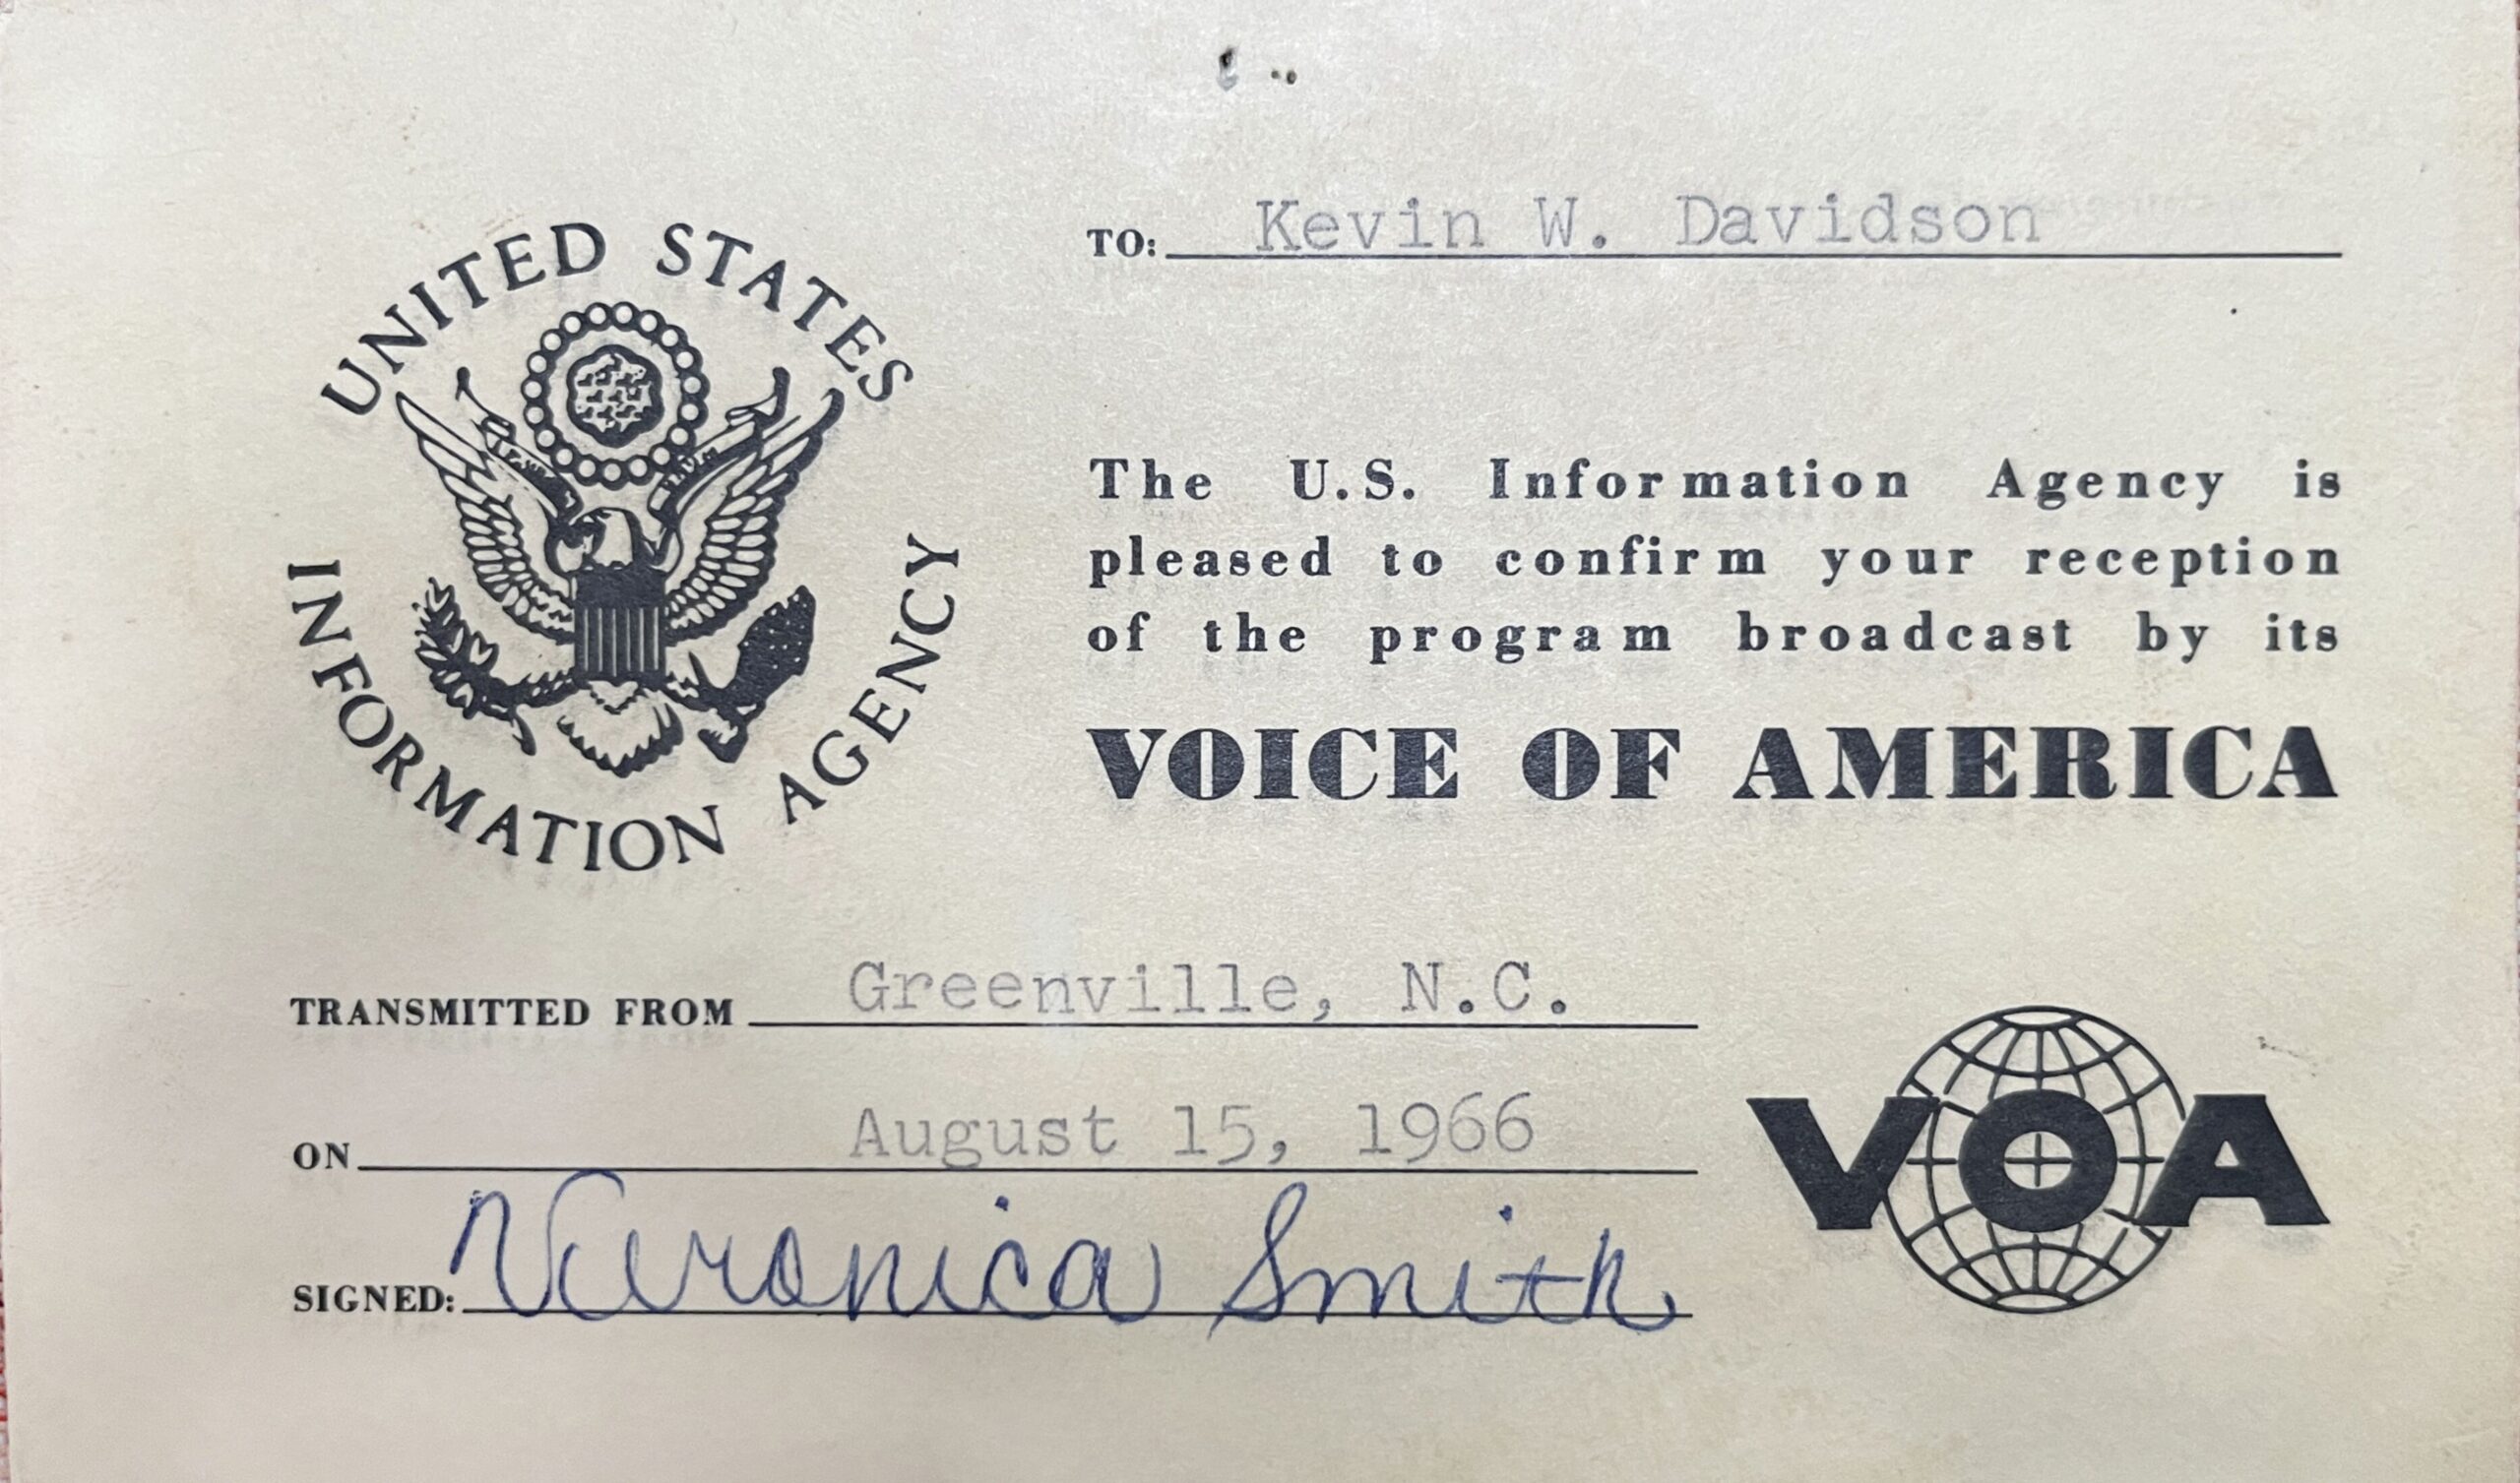 UNITED STATES
INFORMATION AGENCY
TO: Kevin W. Davidson
The U.S. Information Agency is
pleased to confirm your reception
of the program broadcast by its
VOICE OF AMERICA
TRANSMITTED FROM Greenville, N.C.
ON August 15, 1966
SIGNED: Veronica Smith
VOA